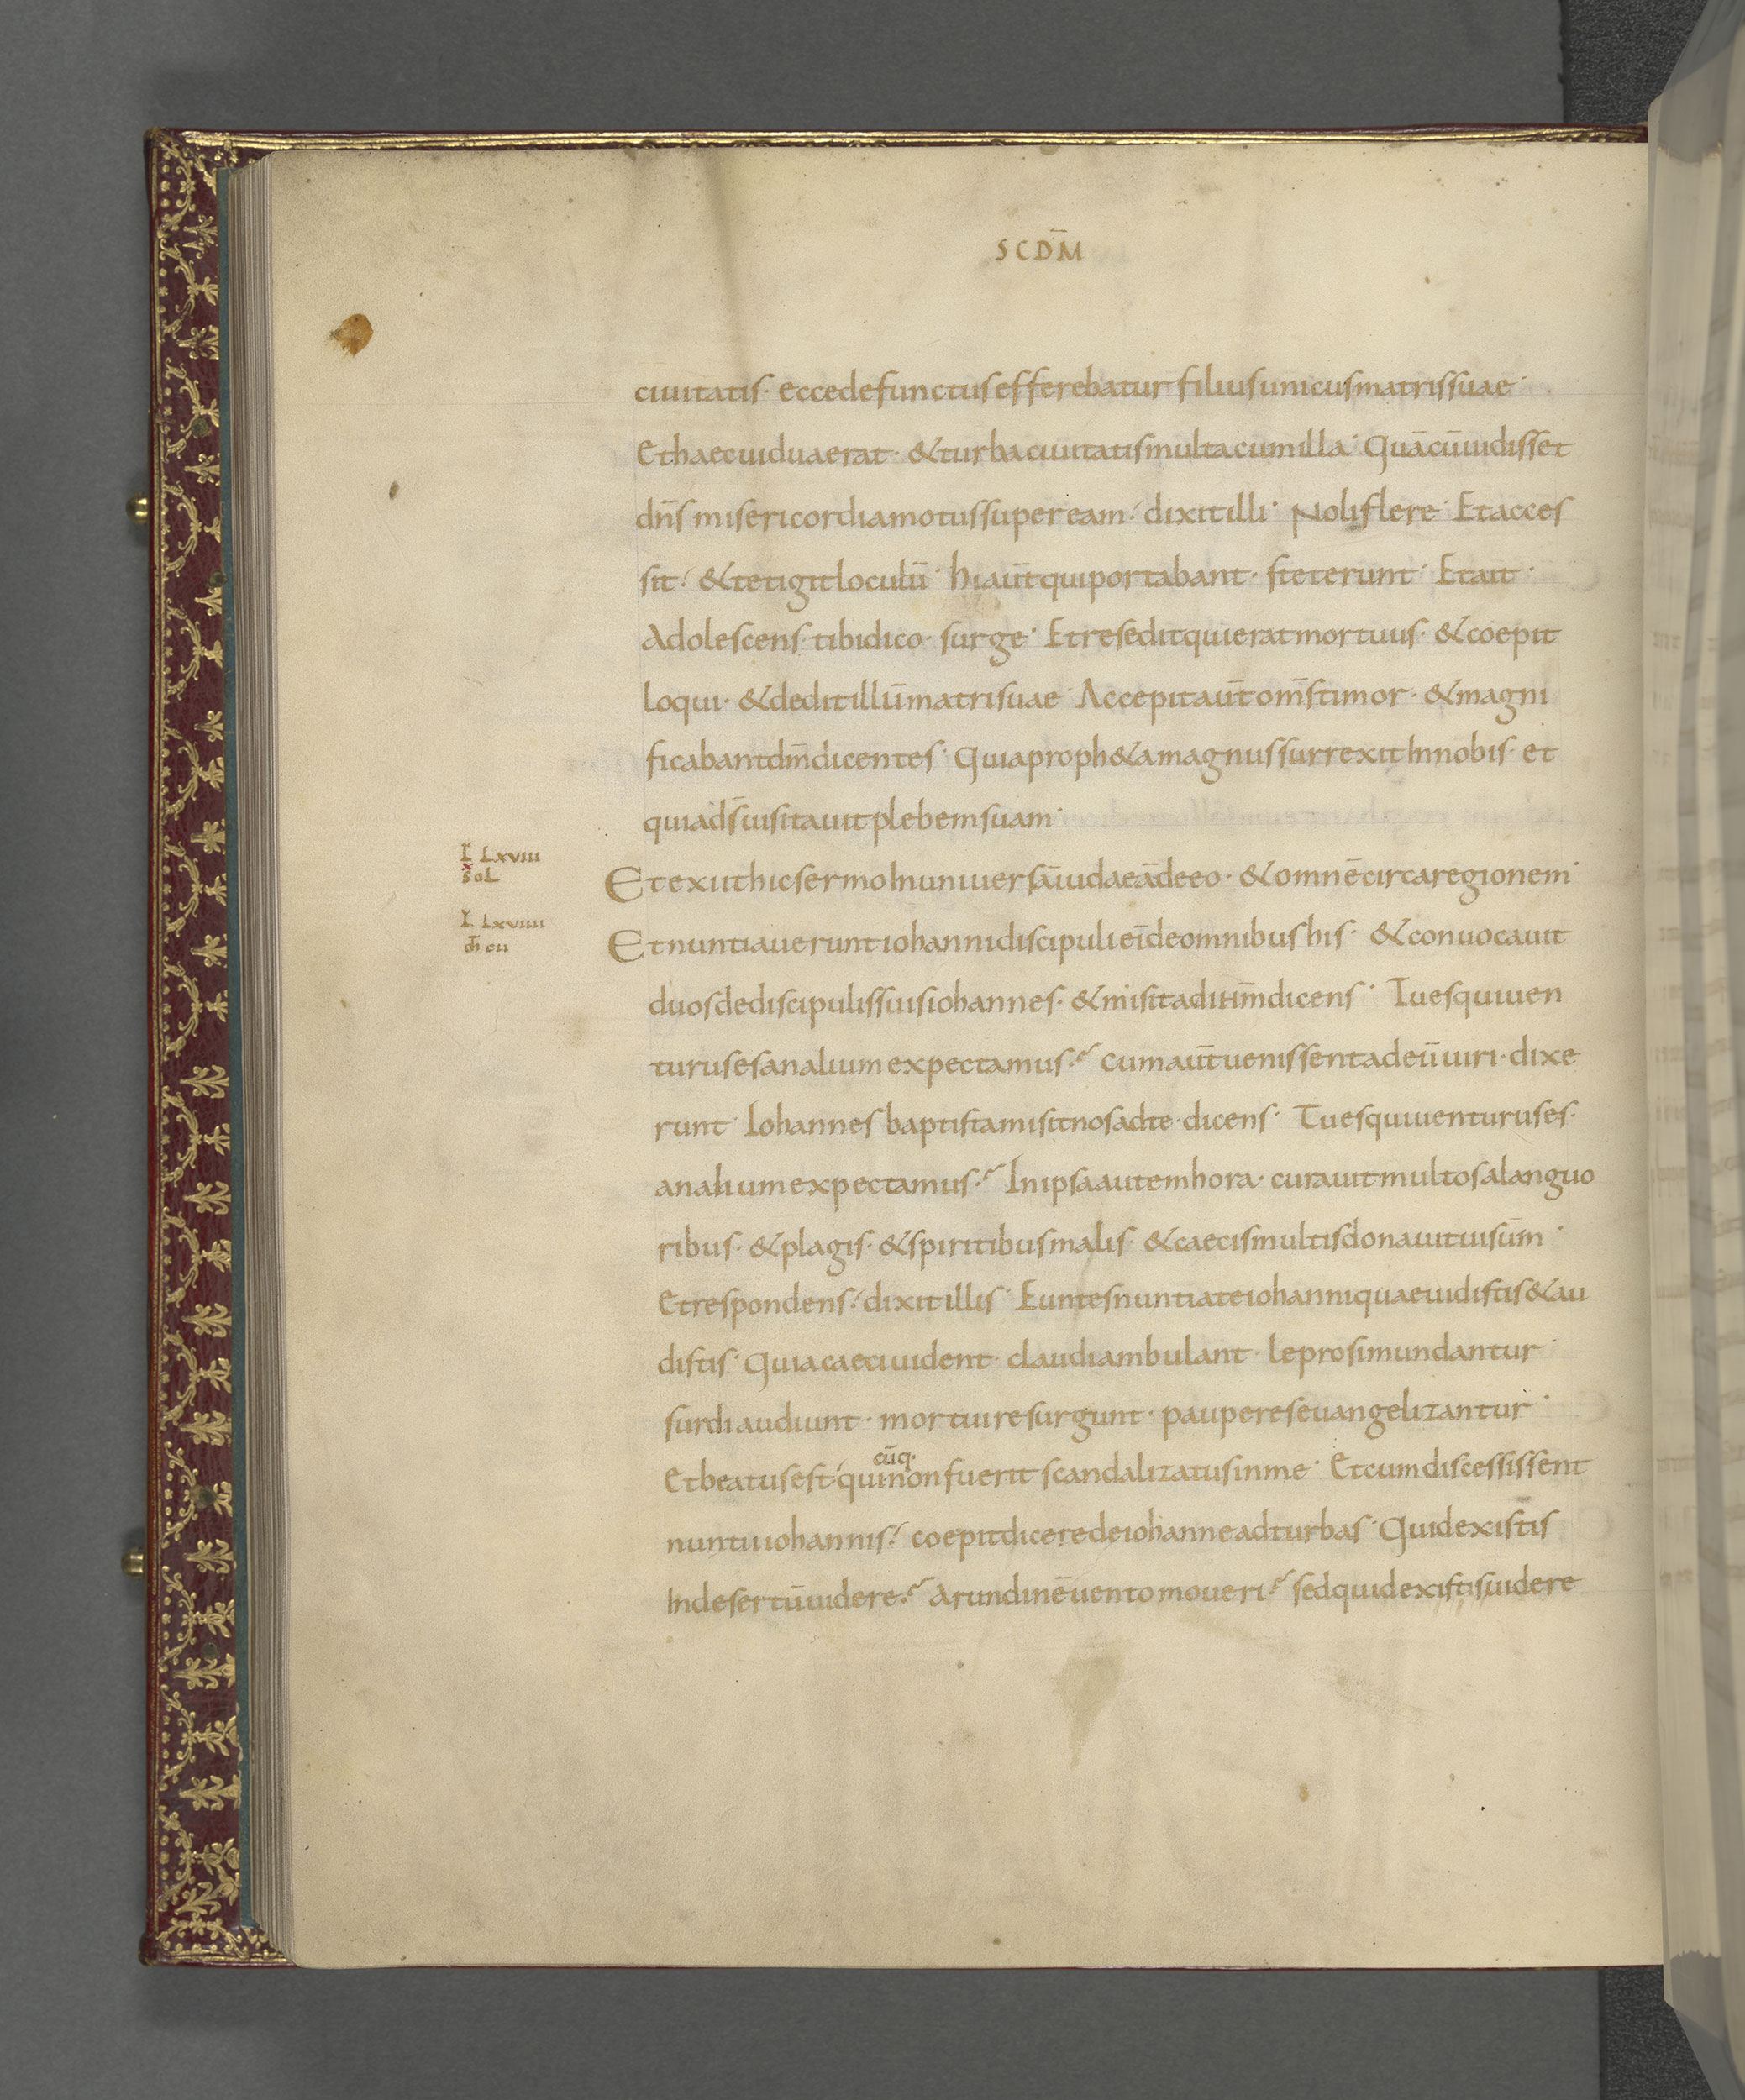 SCDM̄
ciuitatis· ecce defunctus efferebatur filius unicus matris suae·
Et haec uidua erat· & turba ciuitatis multa cum illa· Quā cū uidisset
dn̄s misericordia motus super eam· dixit illi· Noli flere· Et acces
sit· & tetigit loculū· hi aūt qui portabant· steterunt· Et ait·
Adolescens tibi dico· surge· Et resedit qui erat mortuus· & coepit
loqui· & dedit illū matri suae· Accepit aūt om̄s timor· & magni
ficabant dm̄ dicentes· Quia proph&a magnus surrexit In nobis· et
quia ds̄ uisitauit plebem suam·
L LXVIII
x
sol
Et exiit hic sermo In uniuersā iudaeā de eo· & omnē circa regionem·
L LXVIIII
m̄t cu
Et nuntiauerunt iohanni discipuli eī de omnibus his· & conuocauit
duos de discipulis suis iohannes· & misit ad ihm̄ dicens· Tu es qui uen
turus es an alium expectamus? Cum aūt uenissent ad eū uiri· dixe
runt· Iohannes baptista misit nos ad te· dicens· Tu es qui uenturus es·
an alium expectamus? In ipsa autem hora· curauit multos a languo
ribus· & plagis· & spiritibus malis· & caecis multis donauit uisūm·
Et respondens· dixit illis· Euntes nuntiate iohanni quae uidistis & au
distis· Quia caeci uident· claudi ambulant· leprosi mundantur·
surdi audiunt· mortui resurgunt· pauperes euangelizantur·
cūq·
Et beatus est· qui non fuerit scandalizatus in me· Et cum discessissent
nuntii iohannis· coepit dicere de iohanne ad turbas· Quid existis
In desertū uidere? Arundinē uento moueri? sed quid existis uidere